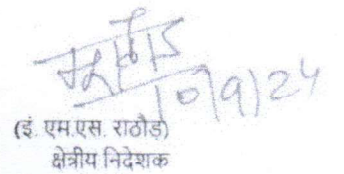 10/9/24
(इं. एम.एस. राठौड़)
क्षेत्रीय निदेशक